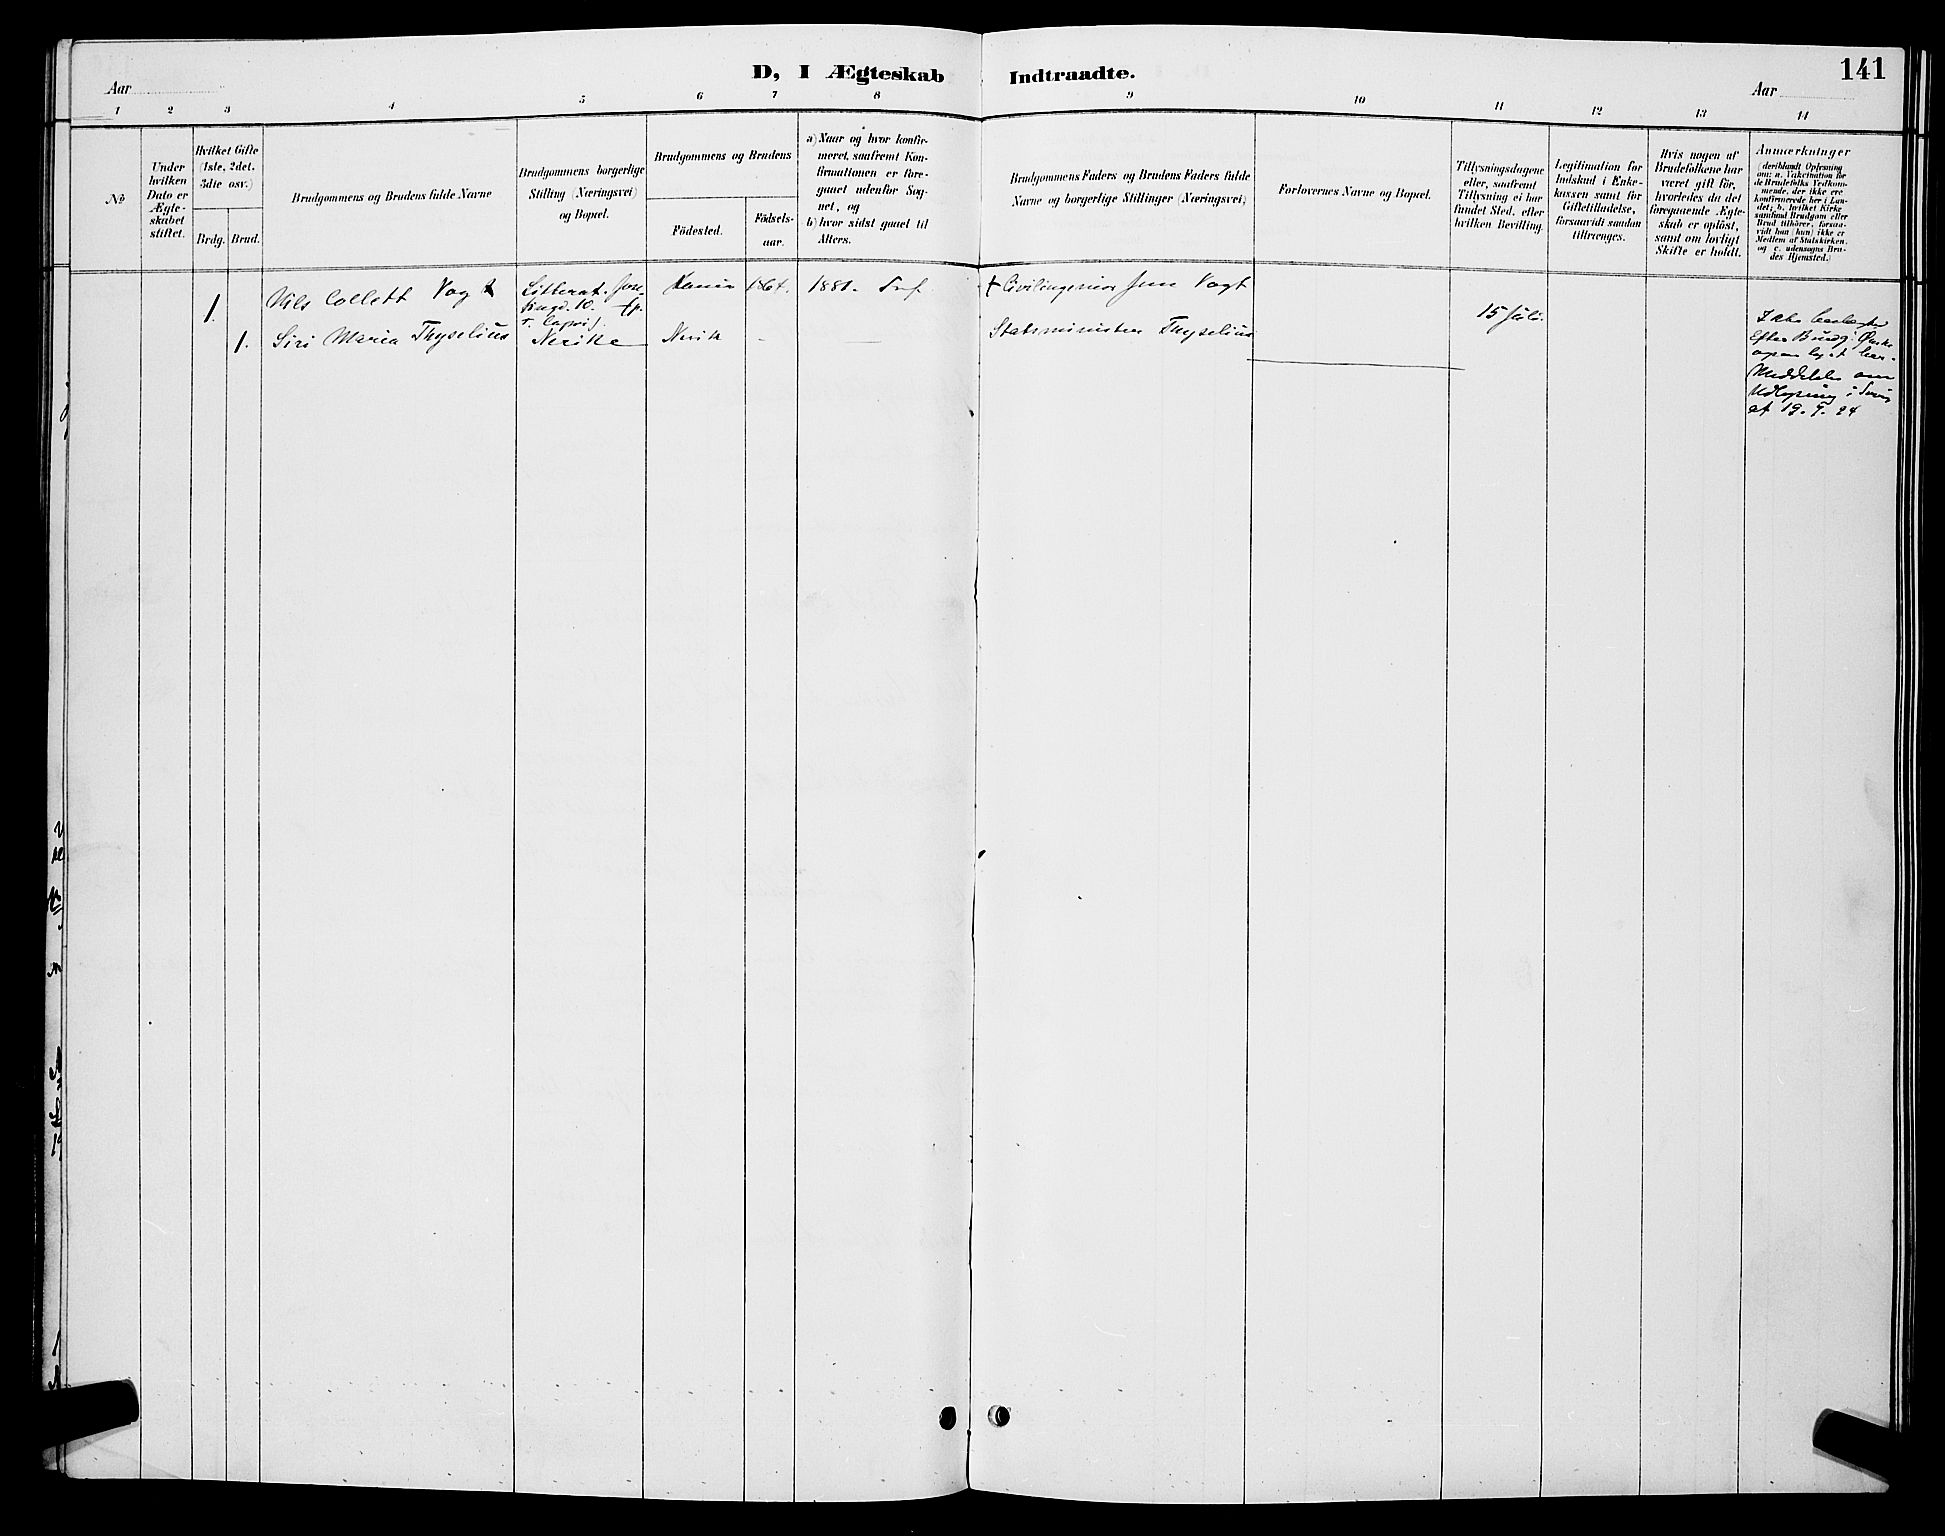 D, I Ægteskab
Indtraadte.
141
Aar
Aar
1 2 3 4 5 6 7 8
9 10 11 12 13 14
No
Under
hvilken
Dato er
Ægte-
skabet
stiftet.
Hvilket Gifte
(1ste, 2det,
3dte osv.)
Brdg. Brud.
Brudgommens og Brudens fulde Navne
Brudgommens borgerlige
Stilling (Næringsvei)
og Bopæl.
Brudgommens og Brudens
Födested.
Födsels-
aar.
a) Naar og hvor konfir-
meret, saafremt Kon-
firmationen er fore-
gaaet udenfor Sog-
net, og
b) hvor sidst gaaet til
Alters.
Brudgommens Faders og Brudens Faders fulde
Navne og borgerlige Stillinger (Næringsvei)
Forlovernes Navne og Bopæl.
Tillysningsdagene
eller, saafremt
Tillysning ei har
fundet Sted, efter
hvilken Bevilling.
Legitimation for
Indskud i Enke-
kassen samt for
Giftetilladelse,
forsaavidt saadan
tiltrænges.
Hvis nogen af
Brudefolkene har
været gift för,
hvorledes da det
foregaaende Ægte-
skab er oplöst,
samt om lovligt
Skifte er holdt.
Anmærkninger
(deriblandt Oplysning
om: a. Vakcination for
de Brudefolks Vedkom-
mende, der ikke ere
konfirmerede her i Lan-
det; b. hvilket Kirke-
samfund Brudgom eller
Brud tilhörer, forsaa-
vidt han (hun) ikke er
Medlem af Statskirken,
og c. udensogns Bru-
des Hjemsted.)
1. Nils Collett Vogt Litterat. 1864. 1881.
10.
1. Siri Maria Thyselius Nerike Nerik
+ Civilingeniør Jens Vogt
Statsminister Thyselius
15 Juli.
Ikke
Efter Brudg: Ønske
Meddelelse om
19. 9. 24